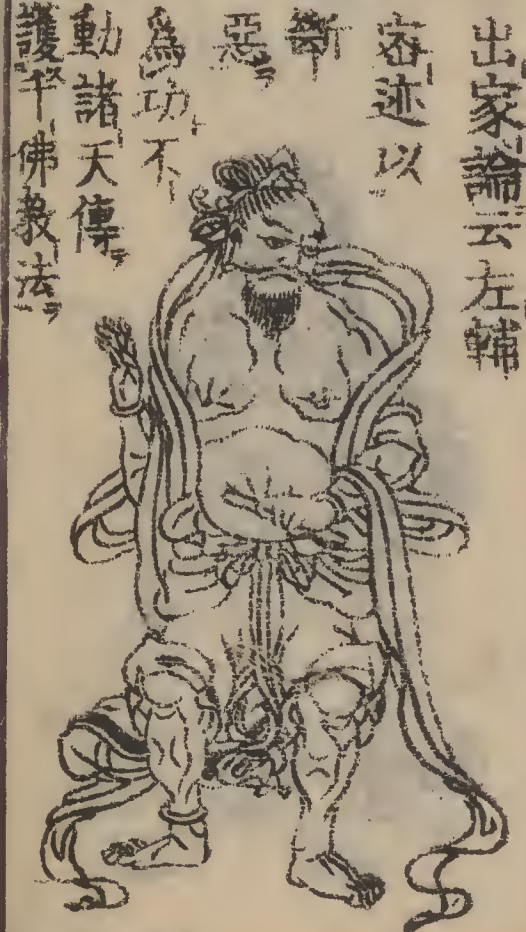 出家論云左輔
密迹以
斷
惡
爲功不
動諸天傳
護千佛教法